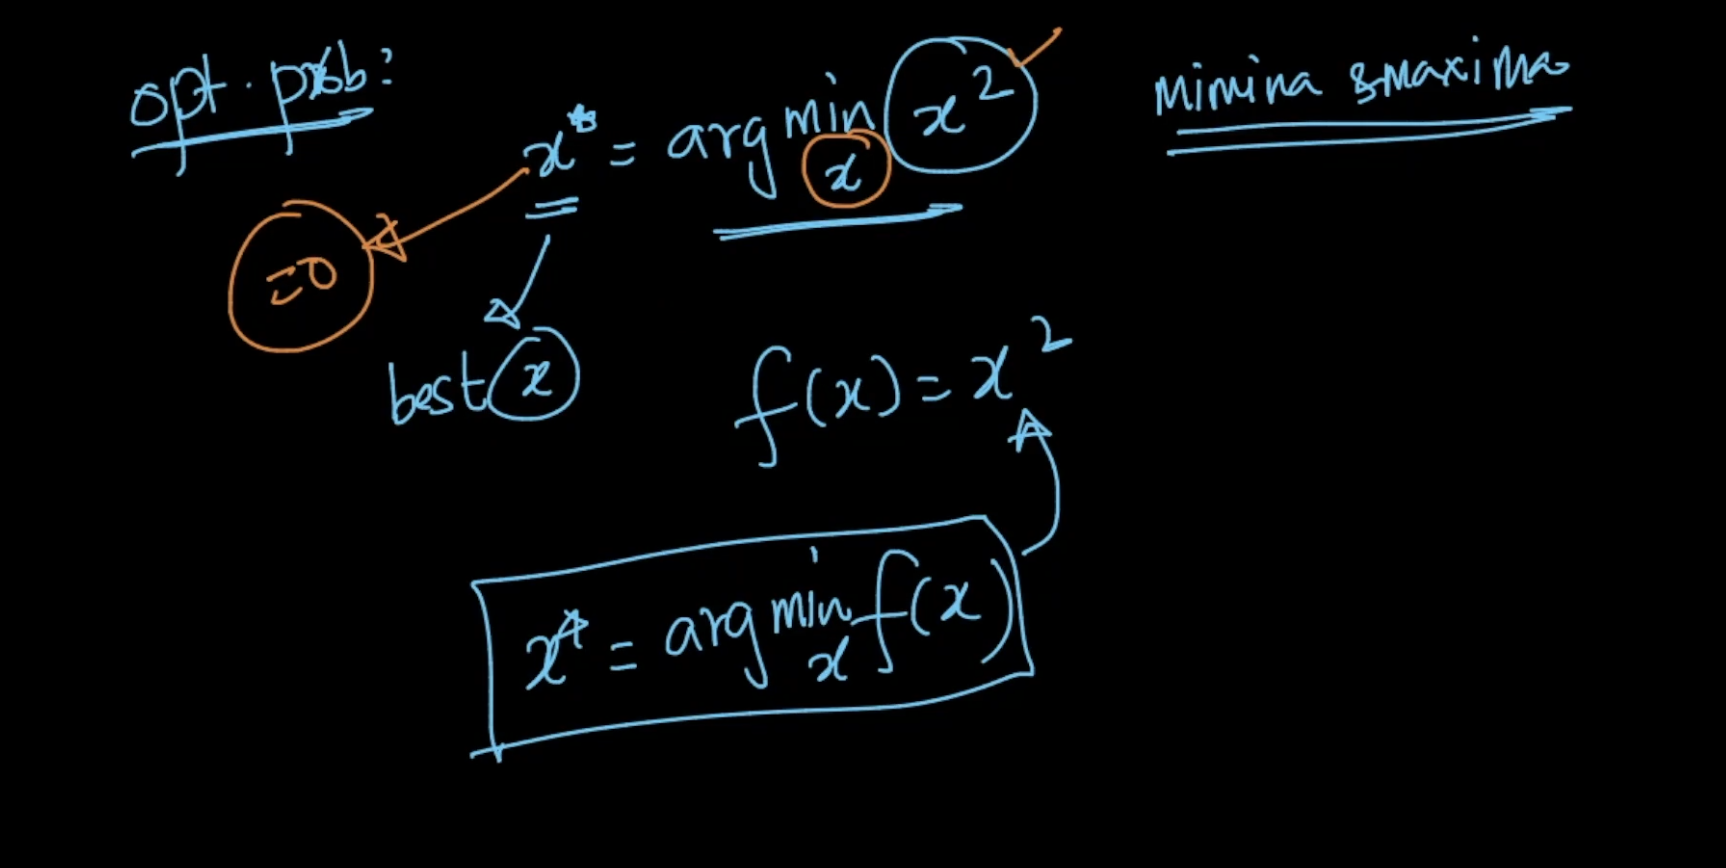 opt. prob:
x* = arg min x²
x
minina & maxima
=0
best x
f(x) = x²
x* = arg min f(x)
x